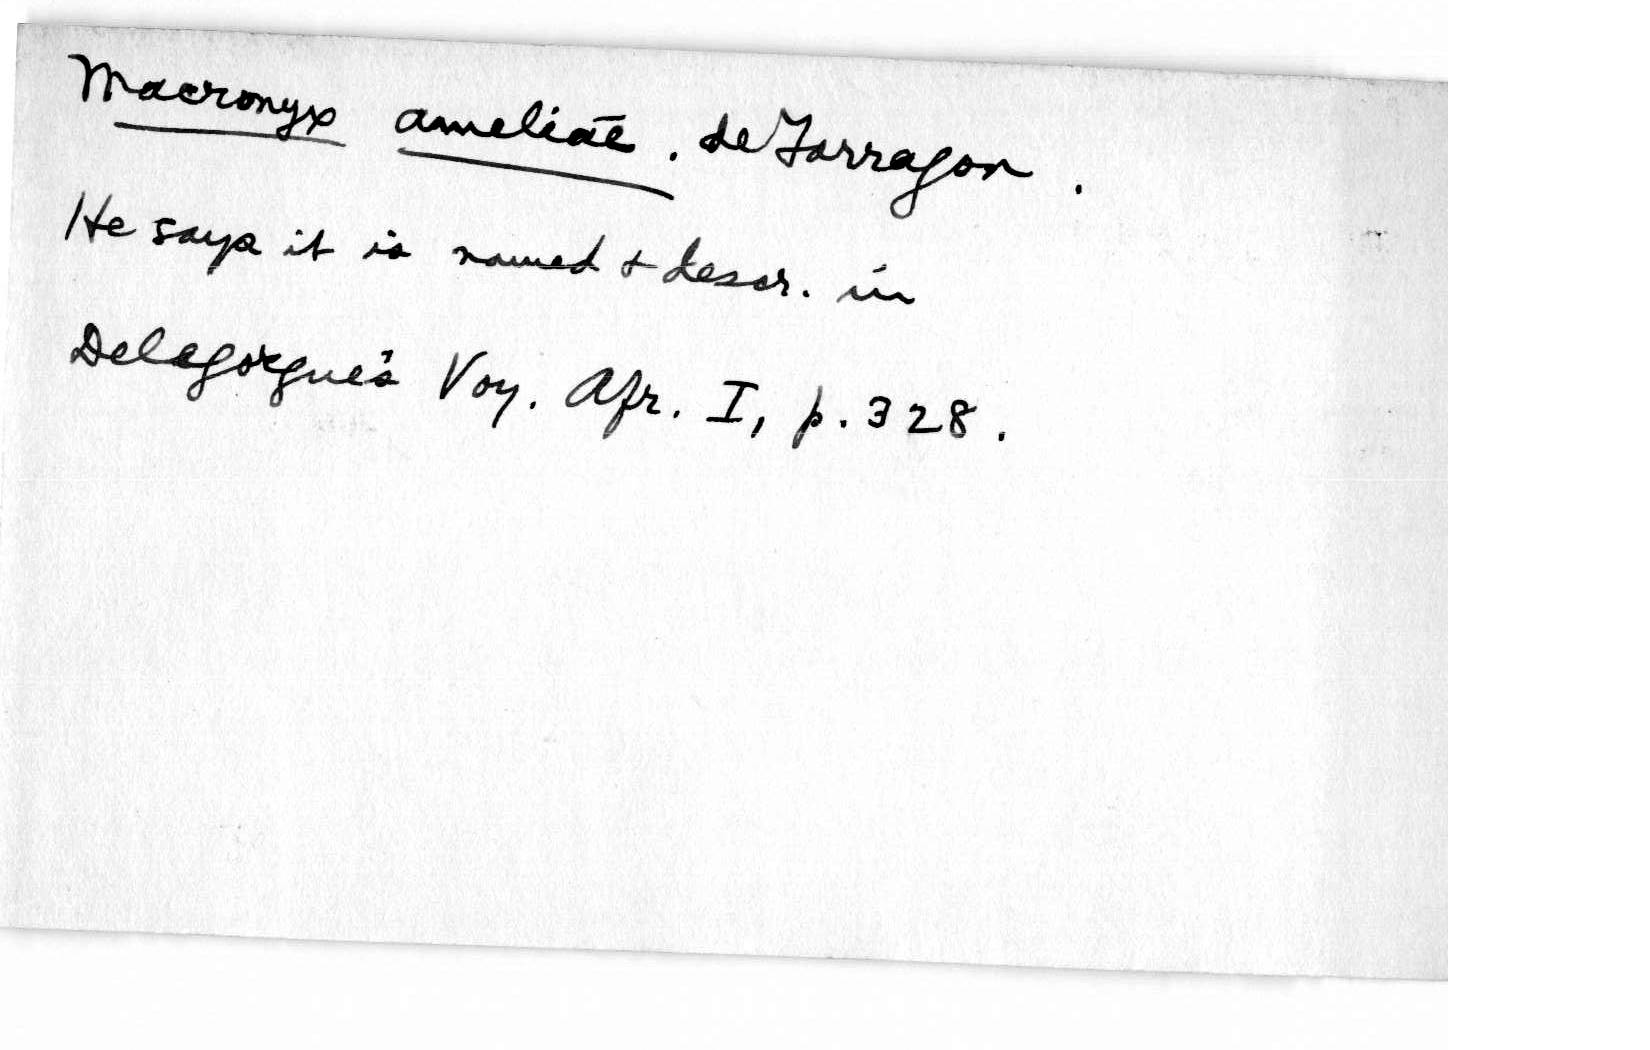 Macronyx ameliae. de Tarragon.
He says it is named + descr. in
Delegorgue's Voy. Afr. I, p. 328.